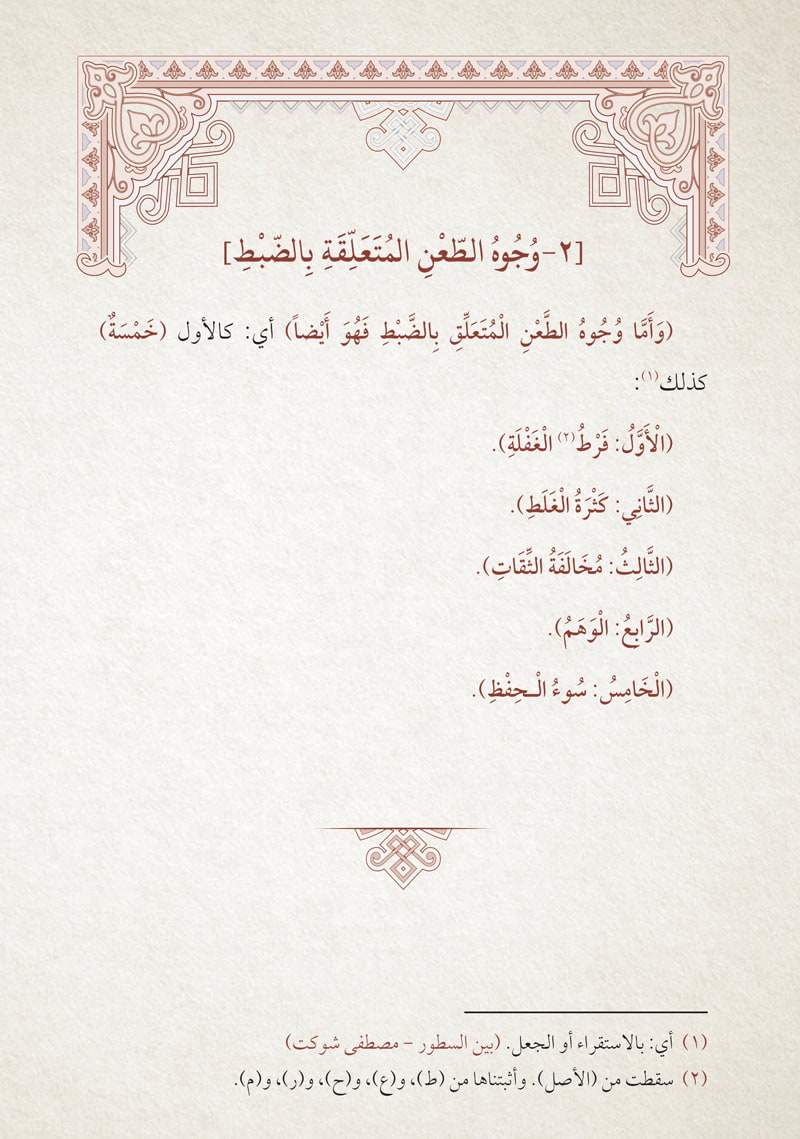 [٢-وُجُوهُ الطّعْنِ المُتَعَلِّقَةِ بِالضّبْطِ]
(وَأَمَّا وُجُوهُ الطَّعْنِ الْمُتَعَلِّقِ بِالضَّبْطِ فَهُوَ أَيْضاً) أي: كالأول (خَمْسَةٌ)
كذلك(١):
(الْأَوَّلُ: فَرْطُ(٢) الْغَفْلَةِ).
(الثَّانِي: كَثْرَةُ الْغَلَطِ).
(الثَّالِثُ: مُخَالَفَةُ الثِّقَاتِ).
(الرَّابِعُ: الْوَهَمُ).
(الْخَامِسُ: سُوءُ الْـحِفْظِ).
(١) أي: بالاستقراء أو الجعل. (بين السطور - مصطفى شوكت)
(٢) سقطت من (الأصل). وأثبتناها من (ط)، و(ع)، و(ح)، و(ر)، و(م).